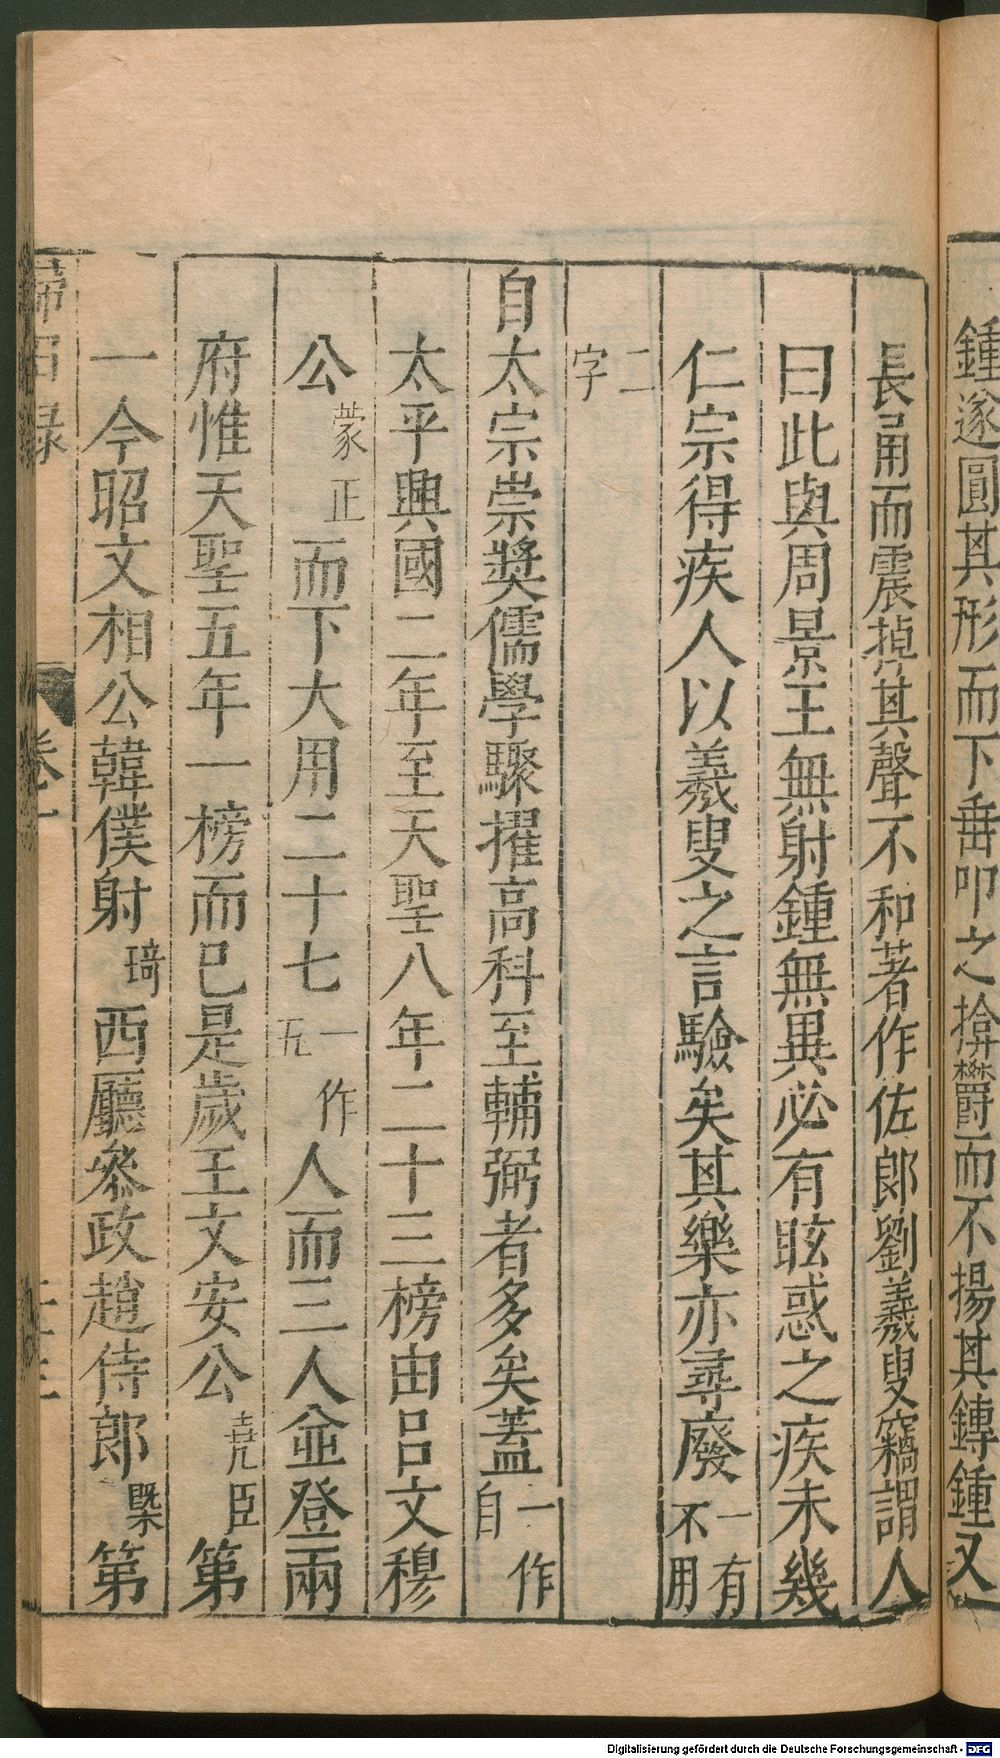 鍾遂圓其形而下垂叩之揜鬱而不揚其鎛鍾又
長甬而震掉其聲不和著作佐郎劉羲叟竊謂人
曰此與周景王無射鍾無異必有眩惑之疾未幾
仁宗得疾人以羲叟之言驗矣其樂亦尋廢一有不用
二字
自太宗崇奬儒學驟擢高科至輔弼者多矣蓋一作自
太平興國二年至天聖八年二十三榜由呂文穆
公蒙正而下大用二十七一作五人而三人並登兩
府惟天聖五年一榜而已是歲王文安公堯臣第
一今昭文相公韓僕射琦西廳參政趙侍郎槩第
歸田錄 卷一
Digitalisierung gefördert durch die Deutsche Forschungsgemeinschaft - DFG